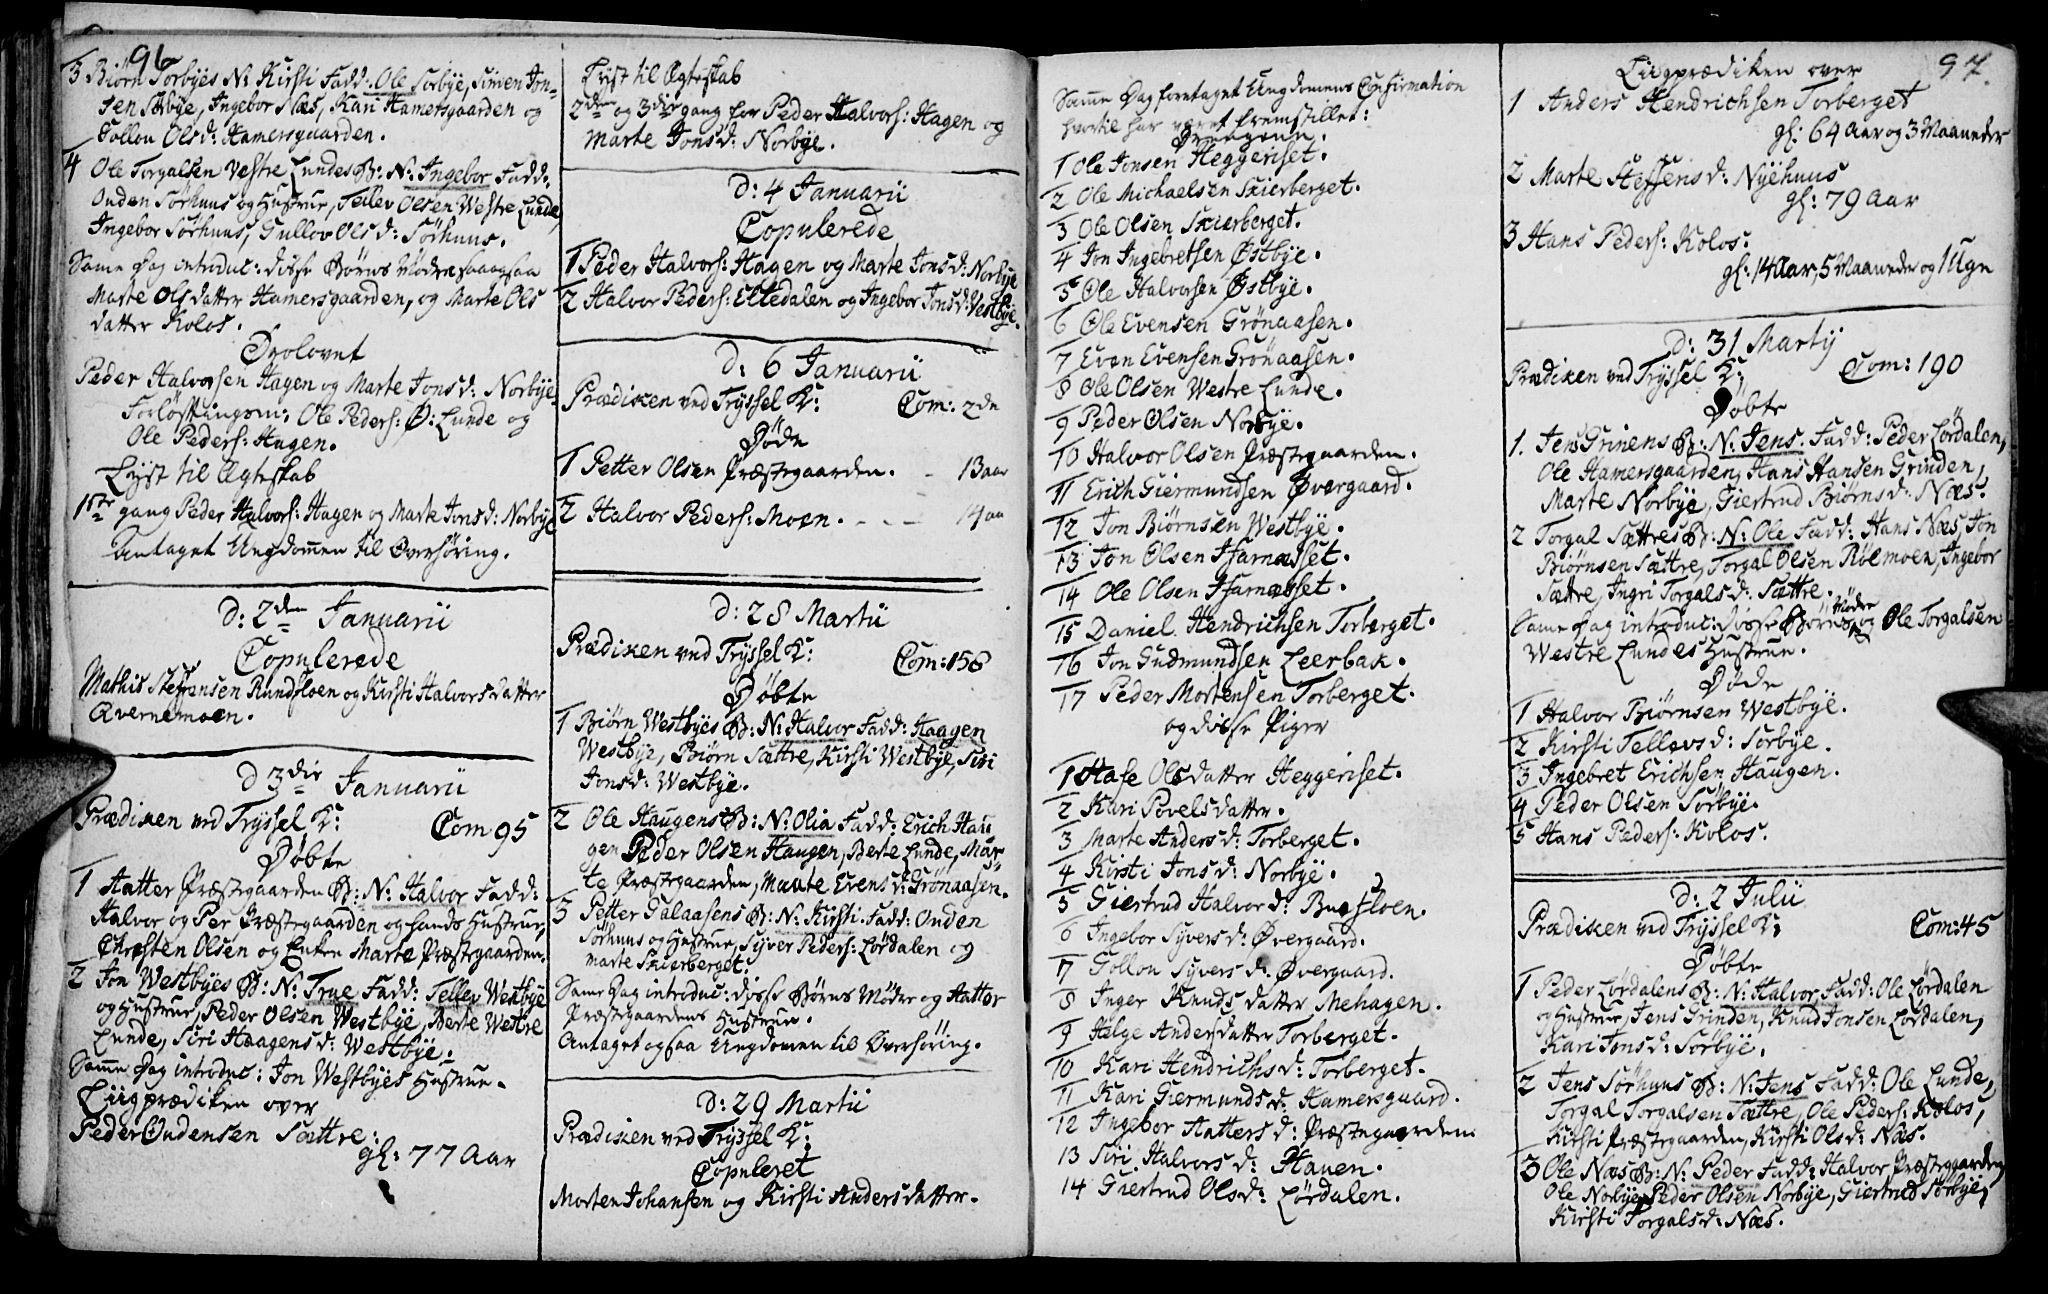 96
3 Biørn Sorbyes N: Kirsti Fadd: Ole Sorbye, Simen Jon-
sen Sorbye, Ingebor Næs, Kari Hamersgaarden og
Gollou Olsd: Hamersgaarden.
4 Ole Torgalsen Vestre Lundes B: N: Ingebor Fadd:
Ouden Sørhuus og Hustrue, Tellev Olsen Westre Lunde,
Ingebor Sørhuus, Gullov Olsd: Sørhuus.
Same Dag introduc: disse Børns Mødre saaogsaa
Marte Olsdatter Hamersgaarden, og Marte Ols
datter Kolos.
Trolovet
Peder Halvorsen Hagen og Marte Jonsd: Norbye.
Forløftingsm: Ole Peders: Ø: Lunde og
Ole Peders: Hagen.
Lyst til Ægteskab
1ste gang Peder Halvors: Hagen og Marte Jonsd: Norbye
Antaget Ungdommen til Overhøring.
D: 2den Januarii
Copulerede
Mathis Steffensen Rundfloen og Kirsti Halvorsdatter
Qvernemoen.
D 3die Januarii
Prædiken ved Tryssel K: Com 95
Døbte
1 Hatter Præstegaarden B: N: Halvor Fadd:
Halvor og Per Præstegaarden og hands Hustrue,
Christen Olsen og Enken Marte Præstegaarden.
2 Jon Westbyes B: N: True Fadd: Tellev Westbye
og Hustrue, Peder Olsen Westbye, Berte Westre
Lunde, Siri Haagensd: Westbye.
Samme Dag introduc: Jon Westbyes Hustrue.
Liigprædiken over
Peder Oudensen Sættre:
gl: 77 Aar
Lyst til Ægteskab
2den og 3die gang for Peder Halvors: Hagen og
Marte Jonsd: Norbye.
D: 4 Januarii
Copulerede
1 Peder Halvors: Hagen og Marte Jonsd: Norbye
2 Halvor Peders: Eltedalen og Ingebor Jonsd: Vestbye.
D: 6 Januarii
Prædiken ved Tryssel K: Com: 2de
Døde
1 Petter Olsen Præstegaarden. - 13 aar
2 Halvor Peders: Moen. - - - 14 aa
D: 28 Martii
Prædiken ved Tryssel K: Com: 158
Døbte
1 Biørn Westbyes B: N: Halvor Fadd: Haagen
Westbye, Biørn Sættre, Kirsti Westbye, Siri
Jonsd: Westbye.
2 Ole Haugens B: N: Olia Fadd: Erich Hau
gen Peder Olsen Haugen, Berte Lunde, Mar-
te Præstegaarden, Maute Evensd: Grönaasen.
3 Petter Galaasens B: N: Kirsti Fadd: Ouden
Sørhuus og Hustrue, Syver Peders: Lørdalen og
Marte Skierberget.
Same Dag introduc: disse Børns Mødre og Hatter
Præstegaardens Hustrue.
Antaget ogsaa Ungdomen til Overhöring.
D: 29 Martii
Prædiken ved Tryssel K:
Copuleret
Morten Johansen og Kirsti Andersdatter.
Samme Dag foretaget Ungdomens Confirmation
hvortil har været fremstillet:
Drengene.
1 Ole Jonsen Heggeriset.
2 Ole Michaelsen Skierberget.
3 Ole Olsen Skierberget.
4 Jon Ingebretsen Østbye.
5 Ole Halvorsen Østbye.
6 Ole Evensen Grönaasen.
7 Even Evensen Grönaasen.
8 Ole Olsen Westre Lunde.
9 Peder Olsen Norbye.
10 Halvor Olsen Præstegaarden.
11 Erich Giermundsen Øvergaard.
12 Jon Biørnsen Westbye.
13 Jon Olsen Jfarnæsset.
14 Ole Olsen Jfarnæsset.
15 Daniel Hendrichsen Torberget.
16 Jon Gudmundsen Leerbak.
17 Peder Mortensen Torberget.
og disse Piger
1 Hafe Olsdatter Heggeriset.
2 Kari Povelsdatter.
3 Marte Andersd: Torberget.
4 Kirsti Jonsd: Norbye.
5 Giertrud Halvord: Bucfloen.
6 Ingebor Syversd: Øvergaard.
7 Gollou Syversd: Øvergaard.
8 Inger Knudsdatter Mehagen.
9 Helge Andersdatter Torberget.
10 Kari Hendrichsd: Torberget.
11 Kari Giermundsd: Hamersgaard.
12 Ingebor Hattersd: Præstegaarden
13 Siri Halvorsd: Hauen.
14 Giertrud Olsd: Lördalen.
97.
Liigprædiken over
1 Anders Hendrichsen Torberget
gl: 64 Aar og 3 Maaneder
2 Marte Steffensd: Nyehuus
gl: 79 Aar
3 Hans Peders: Kolos:
gl: 14 Aar, 5 Maaneder og 1 Uge
D: 31 Martij
Prædiken ved Tryssel K: Com: 190
Døbte
1. Jens Grinens B: N: Jens. Fadd: Peder Lördalen,
Ole Hamersgaarden, Hans Hansen Grinden,
Marte Norbye, Giertrud Biørnsd: Næs.
2 Torgal Sættres B: N: Ole Fadd: Hans Næs, Jon
Biørnsen Sættre, Torgal Olsen Rölmoen, Ingebor
Sættre, Ingri Torgalsd: Sættre.
Same Dag introduc: disse Børns Mödre og Ole Torgalsen
Westre Lundes Hustrue.
Døde
1 Halvor Biørnsen Westbye.
2 Kirsti Tellevsd: Sorbye.
3 Ingebret Erichsen Haugen.
4 Peder Olsen Sørbye.
5 Hans Peders: Kolos.
D: 2 Julii
Prædiken ved Tryssel K: Com: 45
Døbte
1 Peder Lørdalens B: N: Halvor Fadd: Ole Lørdalen
og Hustrue, Jens Grinden, Knud Jonsen Lørdalen,
Kari Jonsd: Sorbye.
2 Jens Sørhuus B: N: Jens Fadd: Ole Lunde,
Torgal Torgalsen Sættre, Ole Peders: Kolos,
Kirsti Præstegaarden, Kirsti Olsd: Næs.
3 Ole Næs B: N: Peder Fadd: Halvor Præstegaarden,
Ole Norbye, Peder Olsen Norbye, Giertrud Sørbye,
Kirsti Torgalsd: Næs.